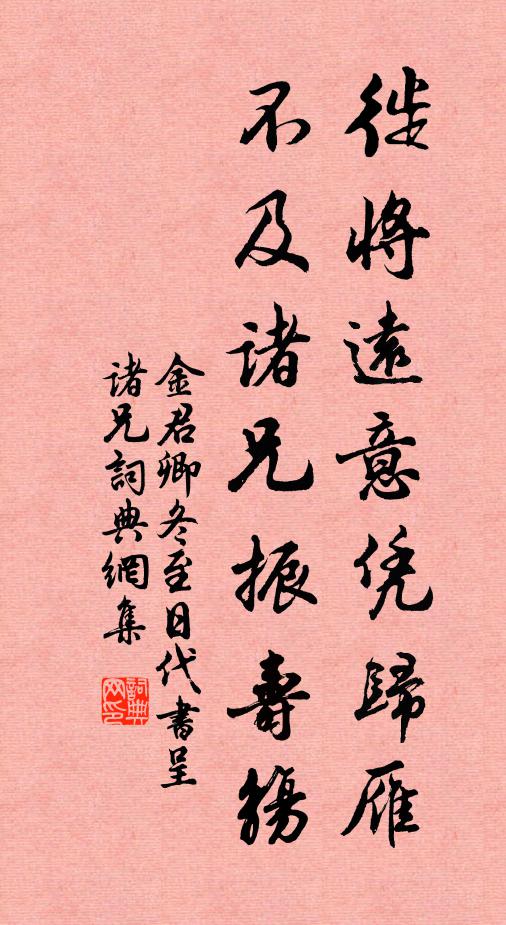 徙將遠意凭歸雁
不及诸兄振壽觴
金君卿冬至日代書呈
诸兄詞典網集
詞典网印